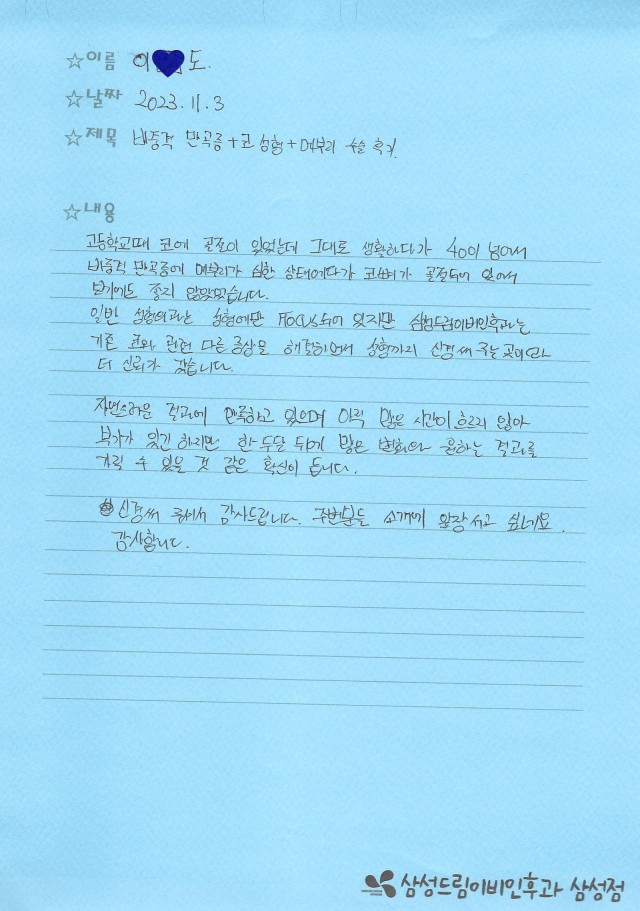 ☆이름 이 도.
☆날짜 2023.11.3
☆제목 비중격 만곡증+코성형+매부리 수술 후기.
☆내용
고등학교때 코에 골절이 있었는데 그대로 생활하다가 40이 넘어서
비중격 만곡증에 매부리가 심한 상태에다가 코뼈가 골절되어 있어서
보기에도 좋지 않았었습니다.
일반 성형외과는 성형에만 FOCUS되어 있지만 삼성드림이비인후과는
기존 코와 관련 다른 증상을 해결하면서 성형까지 신경써 주는 곳이라
더 신뢰가 갔습니다.
자연스러운 결과에 만족하고 있으며 아직 많은 시간이 흐르지 않아
부기가 있긴 하지만 한 두달 뒤에 많은 변화와 원하는 결과를
가질 수 있을 것 같은 확신이 듭니다.
신경써 주셔서 감사드립니다. 주변분들 소개에 앞장서고 싶네요.
감사합니다.
삼성드림이비인후과 삼성점